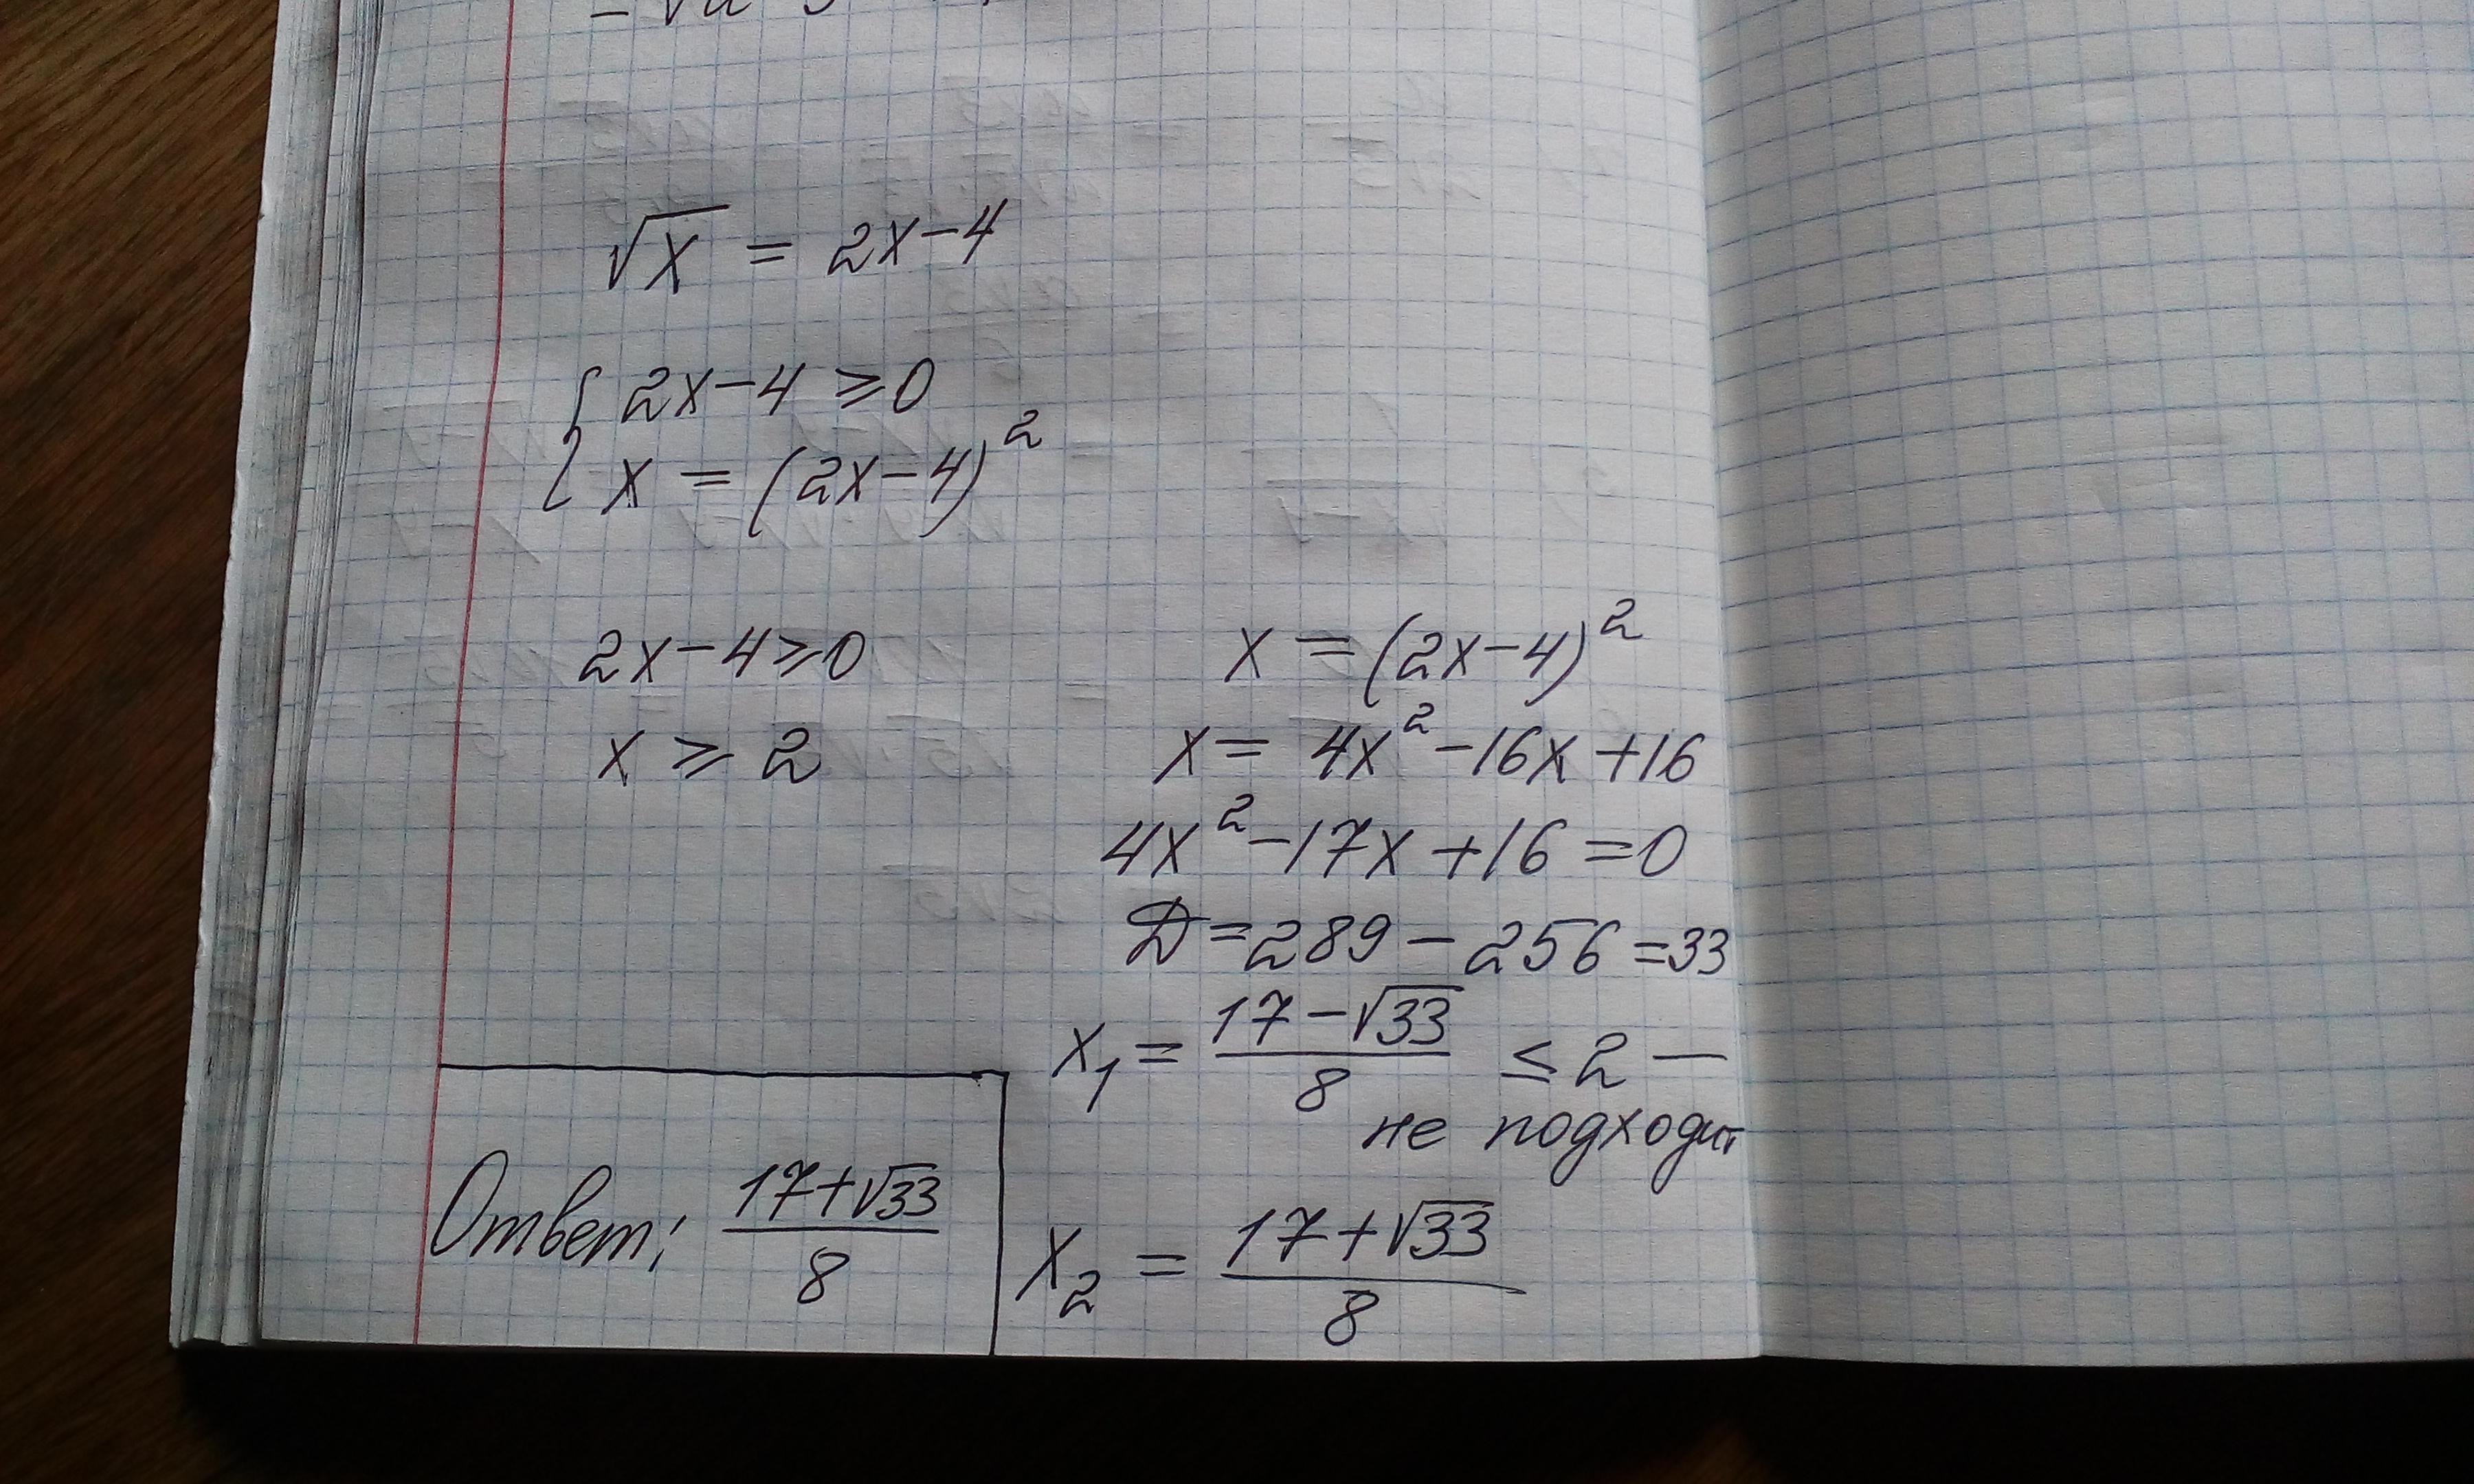 √x = 2x-4
{ 2x-4 ≥ 0
x = (2x-4)²
2x-4 ≥ 0
x ≥ 2
x = (2x-4)²
x = 4x²-16x+16
4x²-17x+16=0
D=289-256=33
x₁ = (17-√33)/8 ≤ 2 —
не подходит
x₂ = (17+√33)/8
Ответ: (17+√33)/8